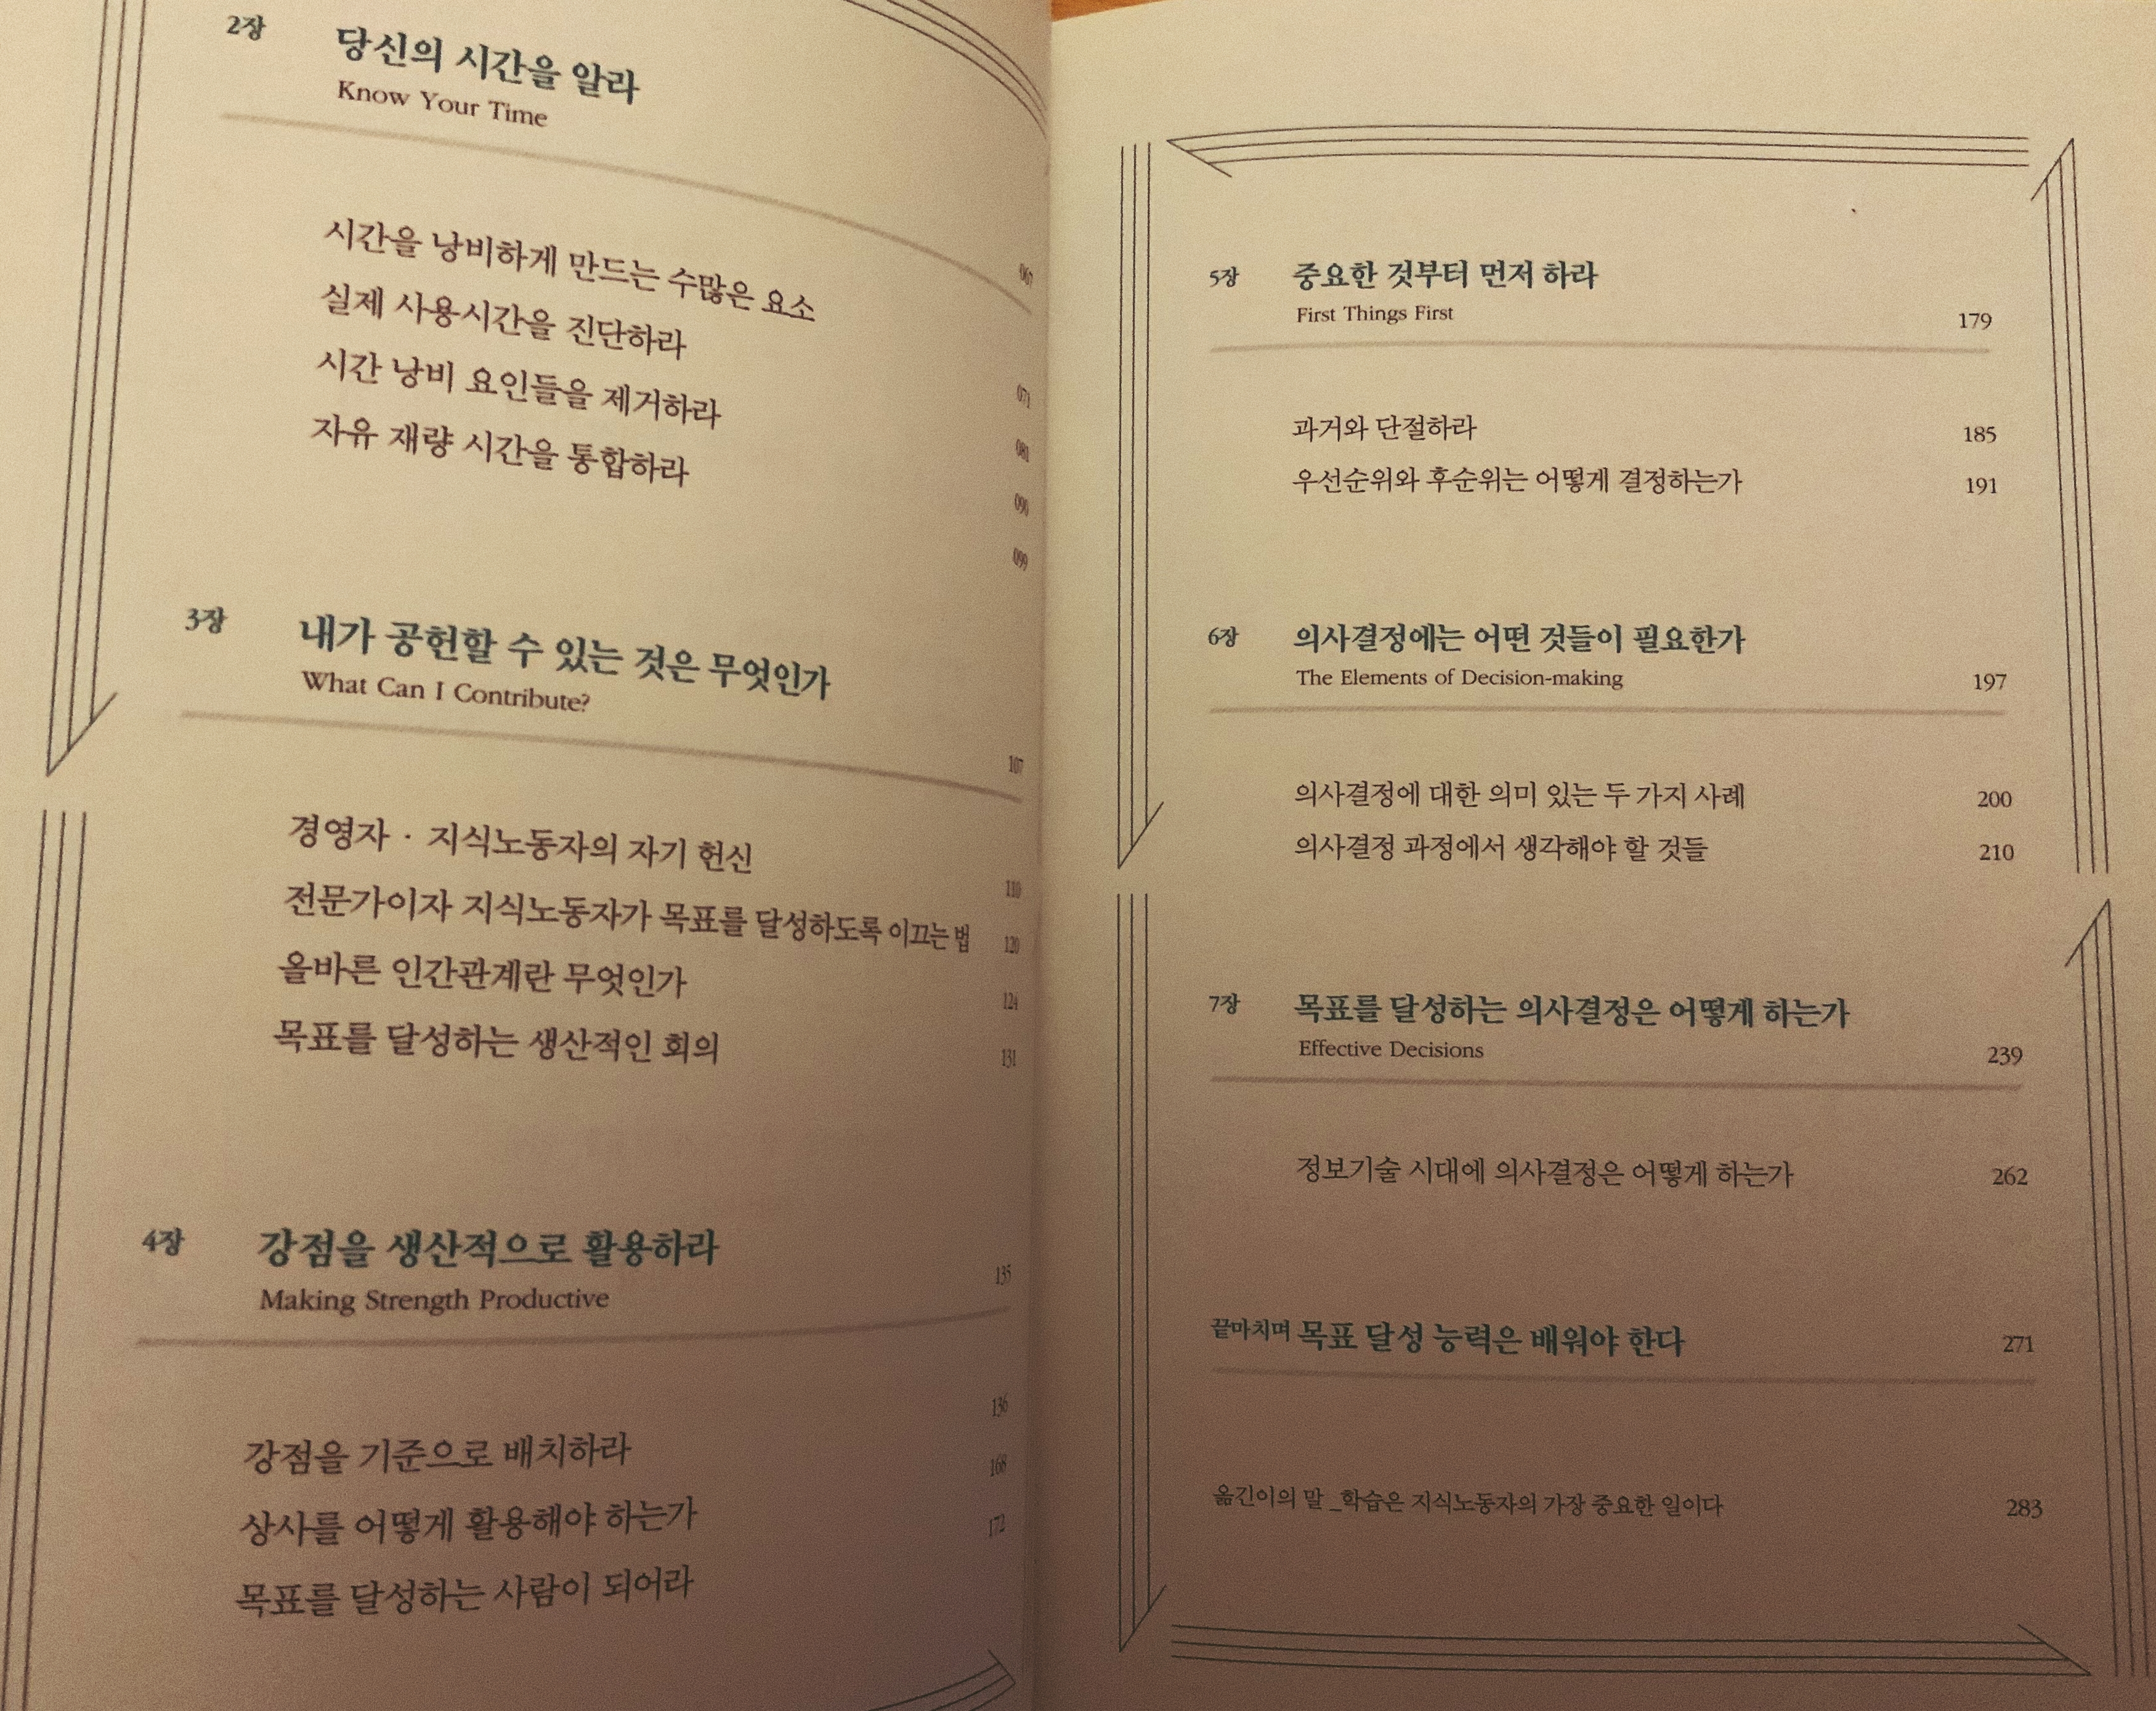 2장 당신의 시간을 알라
Know Your Time 067
시간을 낭비하게 만드는 수많은 요소 071
실제 사용시간을 진단하라 081
시간 낭비 요인들을 제거하라 090
자유 재량 시간을 통합하라 099
3장 내가 공헌할 수 있는 것은 무엇인가
What Can I Contribute? 107
경영자 · 지식노동자의 자기 헌신 110
전문가이자 지식노동자가 목표를 달성하도록 이끄는 법 120
올바른 인간관계란 무엇인가 124
목표를 달성하는 생산적인 회의 131
4장 강점을 생산적으로 활용하라
Making Strength Productive 135
강점을 기준으로 배치하라 136
상사를 어떻게 활용해야 하는가 168
목표를 달성하는 사람이 되어라 172
5장 중요한 것부터 먼저 하라
First Things First 179
과거와 단절하라 185
우선순위와 후순위는 어떻게 결정하는가 191
6장 의사결정에는 어떤 것들이 필요한가
The Elements of Decision-making 197
의사결정에 대한 의미 있는 두 가지 사례 200
의사결정 과정에서 생각해야 할 것들 210
7장 목표를 달성하는 의사결정은 어떻게 하는가
Effective Decisions 239
정보기술 시대에 의사결정은 어떻게 하는가 262
끝마치며 목표 달성 능력은 배워야 한다 271
옮긴이의 말 _학습은 지식노동자의 가장 중요한 일이다 283